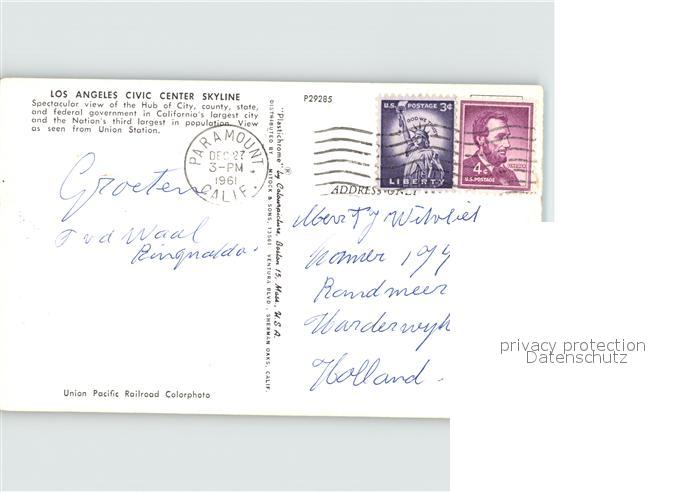 LOS ANGELES CIVIC CENTER SKYLINE
Spectacular view of the Hub of City, county, state,
and federal government in California's largest city
and the Nation's third largest in population. View
as seen from Union Station.
P29285
U.S. POSTAGE 3¢
IN GOD WE TRUST
LIBERTY
4¢
U.S. POSTAGE
PARAMOUNT
DEC 27
3-PM
1961
CALIF.
ADDRESS ONLY
Groeten
v d Waal
"Plastichrome" ® by Colourpicture, Boston 15, Mass., U.S.A.
DISTRIBUTED BY MITOCK & SONS, 13561 VENTURA BLVD., SHERMAN OAKS, CALIF.
Kamer 194
Randmeer
Harderwyk
Holland.
Union Pacific Railroad Colorphoto
privacy protection
Datenschutz